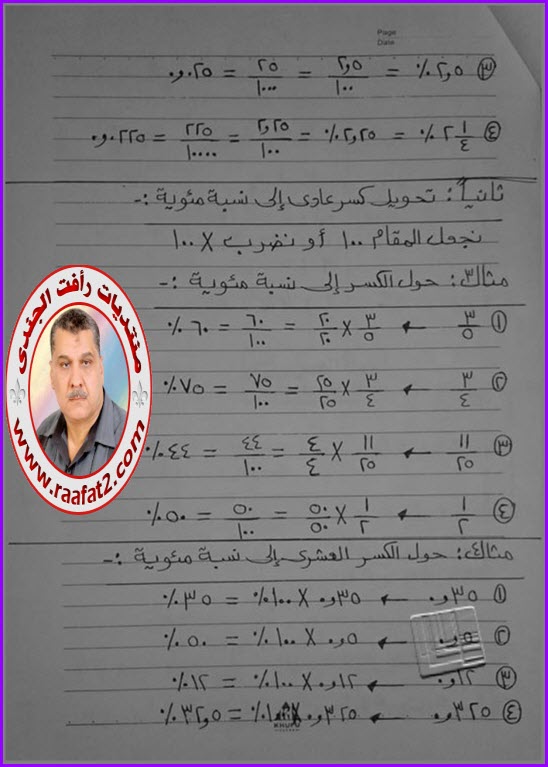 Page
Date
③ ٢,٥٪ = ٢,٥/١٠٠ = ٢٥/١٠٠٠ = ٠,٠٢٥
④ ٢ ١/٤٪ = ٢,٢٥٪ = ٢,٢٥/١٠٠ = ٢٢٥/١٠٠٠٠ = ٠,٠٢٢٥
ثانياً: تحويل كسر عادى إلى نسبة مئوية :-
نجعل المقام ١٠٠ أو نضرب × ١٠٠
مثال٣: حول الكسر إلى نسبة مئوية :-
① ٣/٥ ← ٣/٥ × ٢٠/٢٠ = ٦٠/١٠٠ = ٦٠٪
② ٣/٤ ← ٣/٤ × ٢٥/٢٥ = ٧٥/١٠٠ = ٧٥٪
③ ١١/٢٥ ← ١١/٢٥ × ٤/٤ = ٤٤/١٠٠ = ٤٤٪
④ ١/٢ ← ١/٢ × ٥٠/٥٠ = ٥٠/١٠٠ = ٥٠٪
مثال٤: حول الكسر العشرى إلى نسبة مئوية :-
① ٠,٣٥ ← ٠,٣٥ × ١٠٠٪ = ٣٥٪
② ٠,٥ ← ٠,٥ × ١٠٠٪ = ٥٠٪
③ ٠,١٢ ← ٠,١٢ × ١٠٠٪ = ١٢٪
④ ٠,٣٢٥ ← ٠,٣٢٥ × ١٠٠٪ = ٣٢,٥٪
KHUFU
منتديات رأفت الجندى
www.raafat2.com